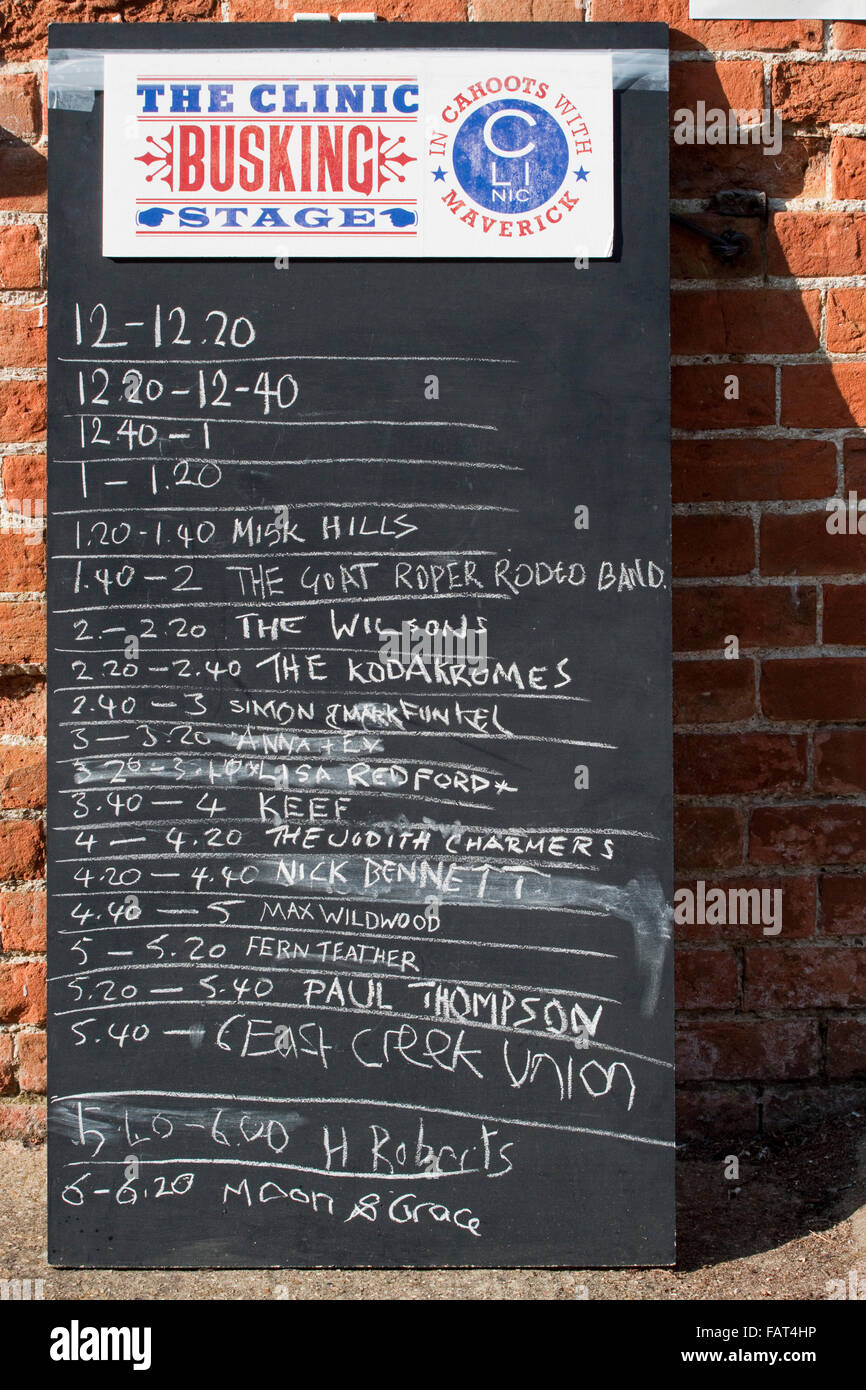 THE CLINIC
BUSKING
STAGE
IN CAHOOTS WITH
CLINIC
MAVERICK
12-12.20
12.20-12-40
12.40-1
1-1.20
1.20-1.40 MISK HILLS
1.40-2 THE GOAT ROPER RODEO BAND.
2-2.20 THE WILSONS
2.20-2.40 THE KODAKROMES
2.40-3 SIMON & MARKFUNKEL
3-3.20 ANNA + EV
3.20-3.40 *LISA REDFORD*
3.40-4 KEEF
4-4.20 THE JUDITH CHARMERS
4.20-4.40 NICK BENNETT
4.40-5 MAX WILDWOOD
5-5.20 FERN TEATHER
5.20-5.40 PAUL THOMPSON
5.40-6 East Creek Union
6.00 H Roberts
6-6.20 Moon & Grace
alamy
Image ID: FAT4HP
www.alamy.com